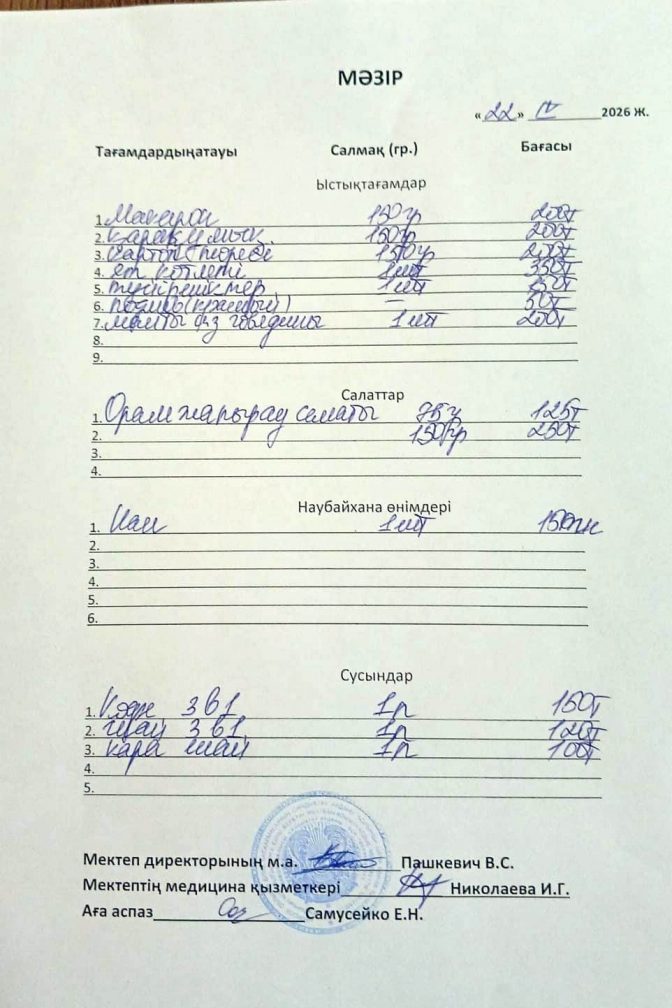 МӘЗІР
«22» IV 2026 Ж.
Тағамдардыңатауы Салмақ (гр.) Бағасы
Ыстықтағамдар
1. Макарон 150гр 200т
2. Қарақұмық 150гр 200т
3. Картоп пюреде 150гр 200т
4. ет котлеті 1шт 350т
5. тефтельктер 1шт 150т
6. подлив( ) – 50т
7. манты из говядины 1шт 200т
8.
9.
Салаттар
1. Орамжапырақ салаты 75гр 125т
2. 150гр 250т
3.
4.
Наубайхана өнімдері
1. Нан 1шт
2.
3.
4.
5.
6.
Сусындар
1. Кофе 3в1 1п 150т
2. Шай 3в1 1п 120т
3. кара шай 1п 100т
4.
5.
Мектеп директорының м.а. Пашкевич В.С.
Мектептің медицина қызметкері Николаева И.Г.
Аға аспаз Самусейко Е.Н.